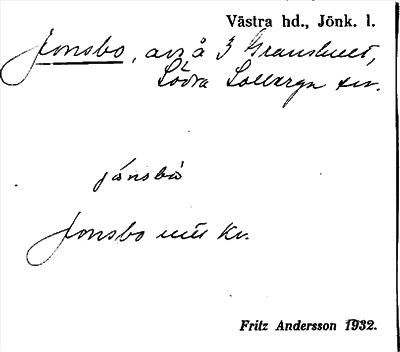 Västra hd., Jönk. l.
Jonsbo, avs å 3 Granshult,
Södra Solberga sn.
jánsbò
Jonsbo
Fritz Andersson 1932.